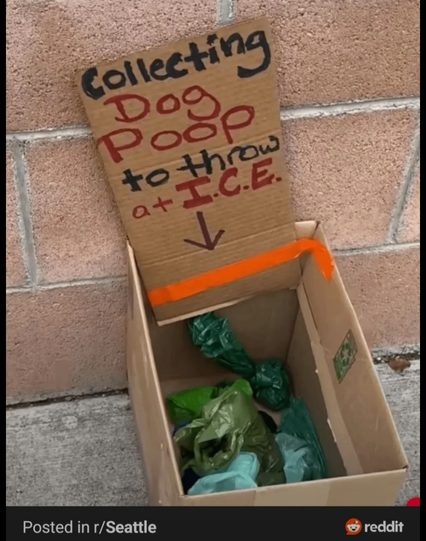 Collecting
Dog
Poop
to throw
at I.C.E.
Posted in r/Seattle
reddit